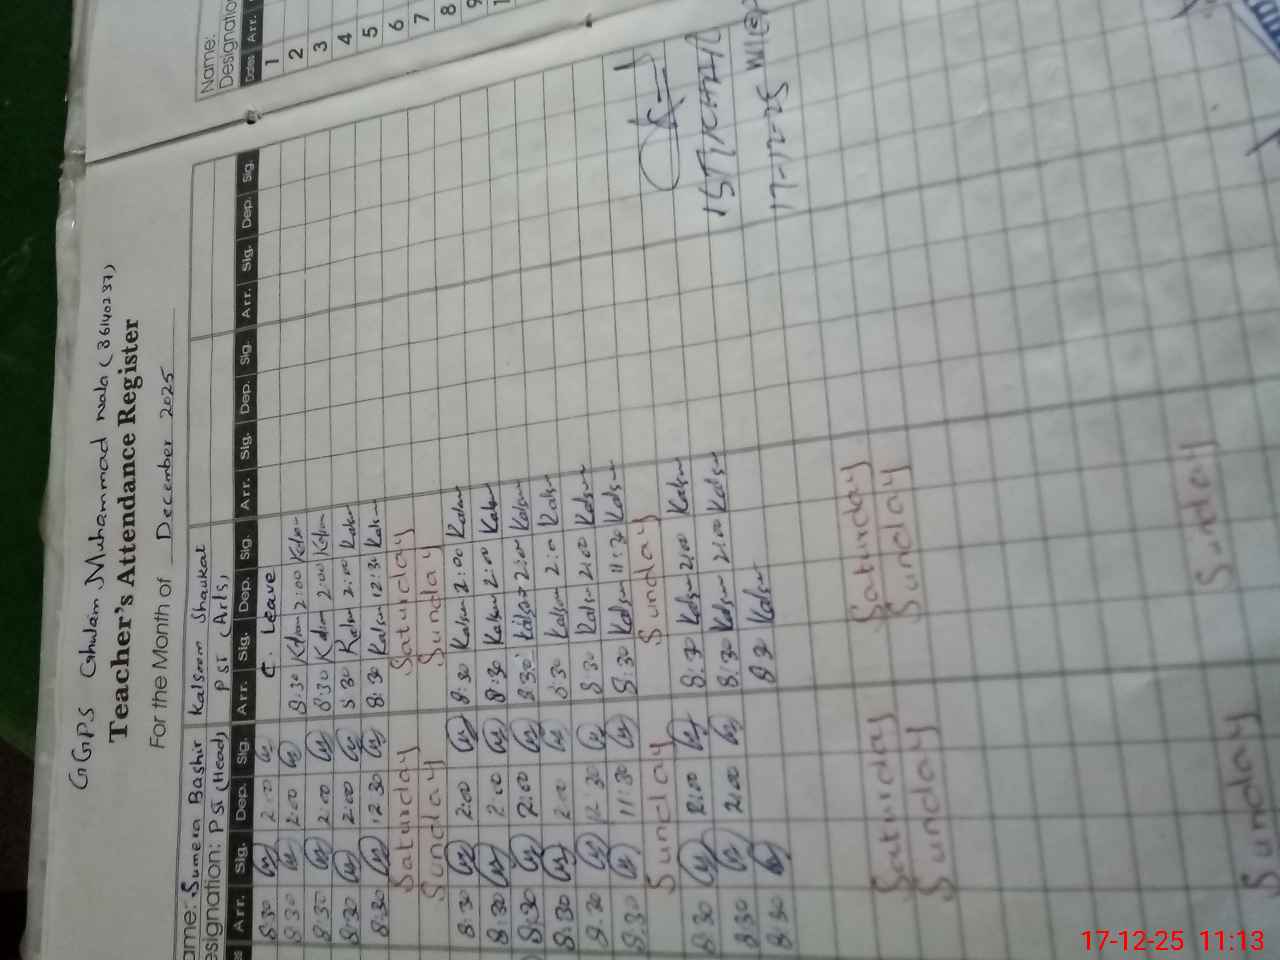 GGPS Ghulam Muhammad Nala (36140237)
Teacher's Attendance Register
For the Month of December 2025
ame: Sumera Bashir Kalsoom Shaukat
esignation: PST (Head) PST (Arts)
es Arr. Sig. Dep. Sig. Arr. Sig. Dep. Sig. Arr. Sig. Dep. Sig. Arr. Sig. Dep. Sig.
8:30 2:00 C. Leave
8:30 2:00 8:30 Kalsum 2:00 Kalsum
8:30 2:00 8:30 Kalsum 2:00 Kalsum
8:30 2:00 8:30 Kalsum 2:00 Kalsum
8:30 12:30 8:30 Kalsum 12:30 Kalsum
Saturday Saturday
Sunday Sunday
8:30 2:00 8:30 Kalsum 2:00 Kalsum
8:30 2:00 8:30 Kalsum 2:00 Kalsum
8:30 2:00 8:30 Kalsum 2:00 Kalsum
8:30 2:00 8:30 Kalsum 2:0 Kalsum
8:30 12:30 8:30 Kalsum 2:00 Kalsum
8:30 11:30 8:30 Kalsum 11:30 Kalsum
Sunday Sunday
8:30 2:00 8:30 Kalsum 2:00 Kalsum
8:30 2:00 8:30 Kalsum 2:00 Kalsum
8:30 8:30 Kalsum
17-12-25
Saturday Saturday
Sunday Sunday
Sunday Sunday
Name:
Designatio
Dates Arr.
1
2
3
4
5
6
7
8
9
17-12-25 11:13